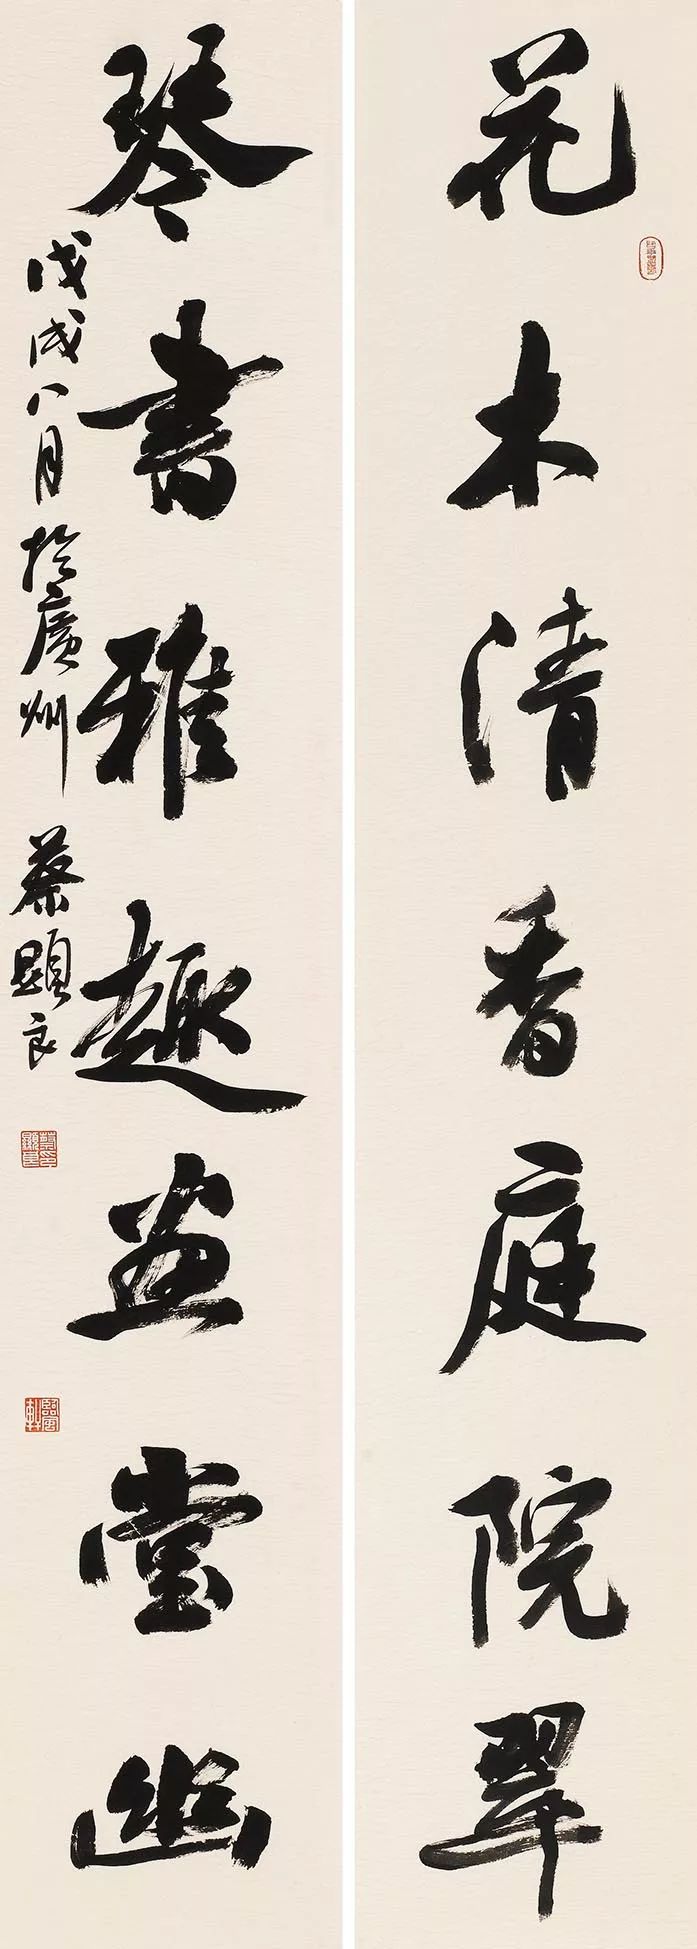 花木清香庭院翠
琴書雅趣畫堂幽
戊戌八月於廣州 蔡顯良